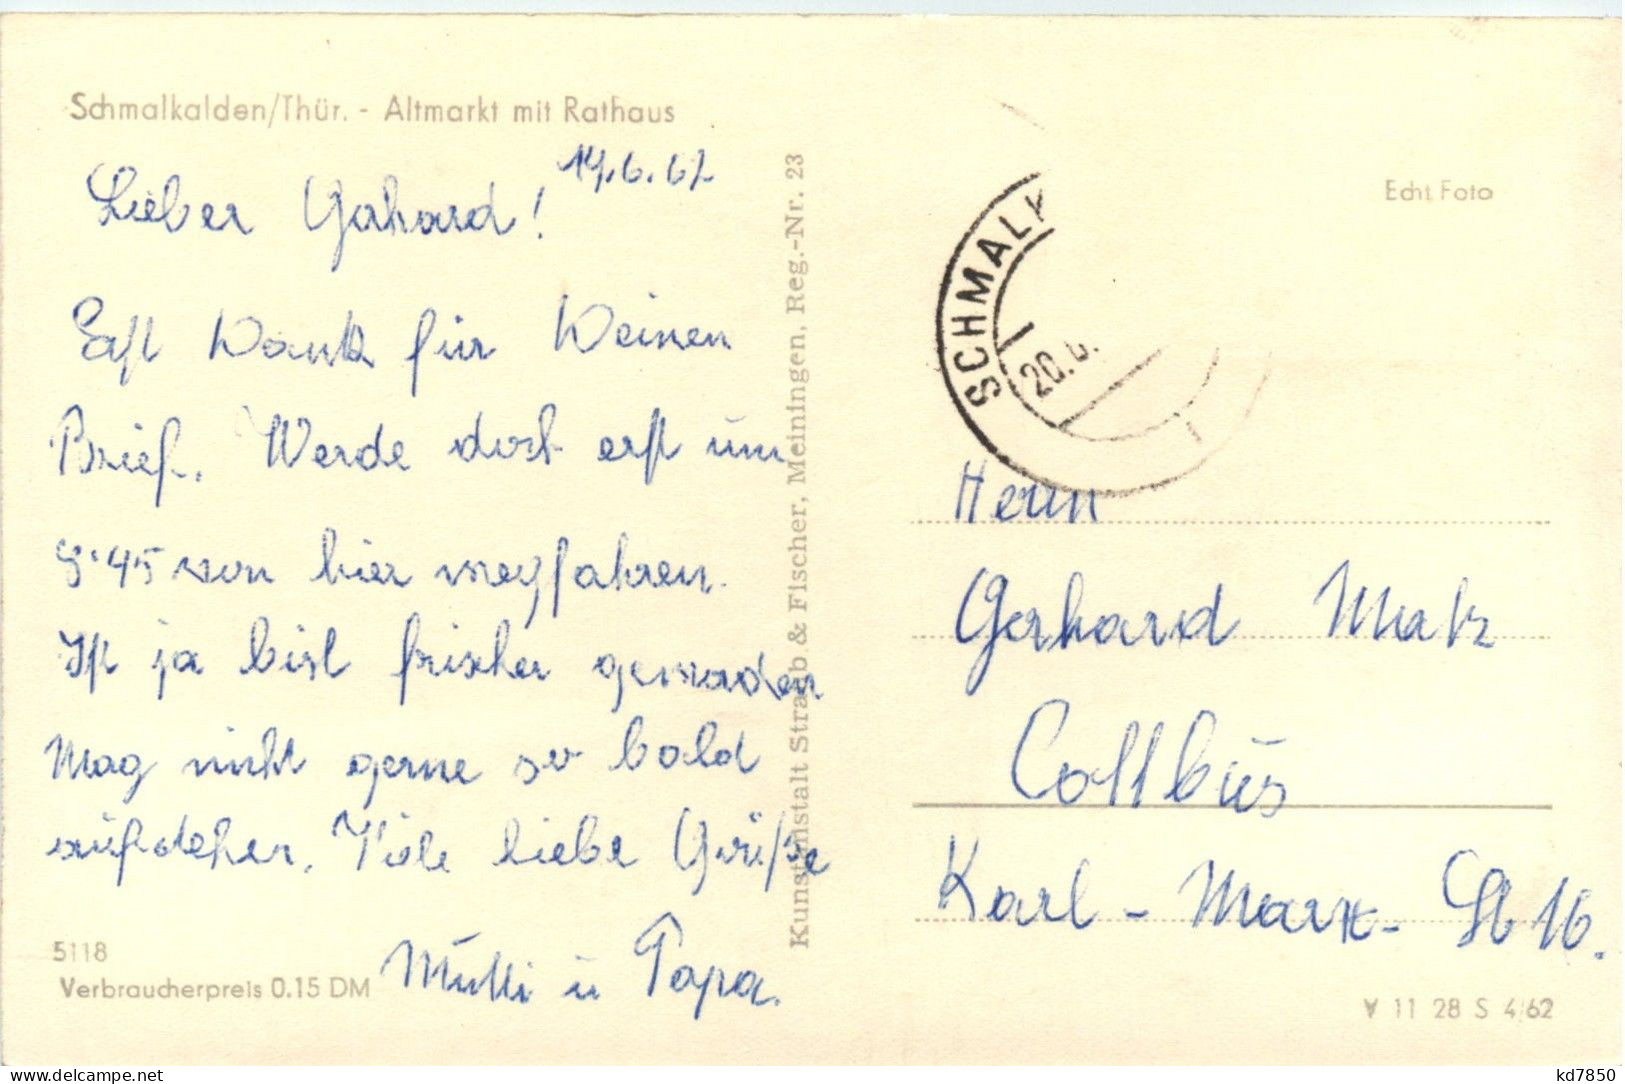 Schmalkalden/Thür. - Altmarkt mit Rathaus
19.6.62
Lieber Gerhard!
Erst Dank für Deinen
Brief. Werde dort erst um
9.45 von hier wegfahren.
Ist ja bist frischer geworden
Mag nicht gerne so bald
aufstehen. Viele liebe Grüße
Mutti u Papa.
5118
Verbraucherpreis 0.15 DM
Kunstanstalt Straub & Fischer, Meiningen, Reg.-Nr. 23
Echt Foto
SCHMALK
20.6.
Herrn
Gerhard Matz
Cottbus
Karl-Marx-St 16.
V 11 28 S 4/62
kd7850